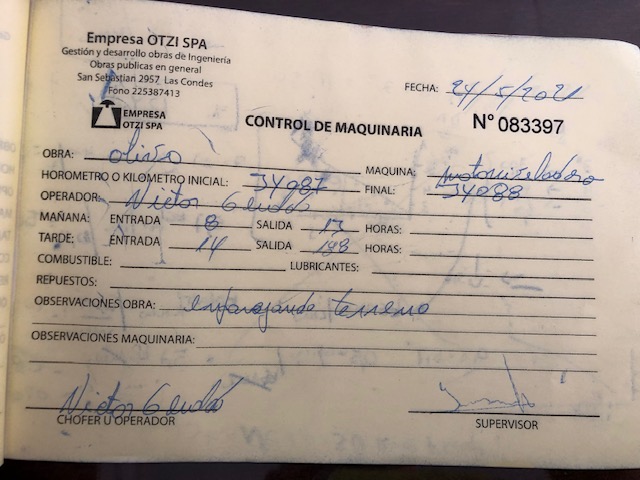 Empresa OTZI SPA
Gestión y desarrollo obras de Ingeniería
Obras publicas en general
San Sebastian 2957 Las Condes
Fono 225387413
EMPRESA
OTZI SPA
FECHA: 24/5/2021
CONTROL DE MAQUINARIA N° 083397
OBRA: olivo MAQUINA: Motoniveladora
HOROMETRO O KILOMETRO INICIAL: 34087 FINAL: 34088
OPERADOR: Victor
MAÑANA: ENTRADA 8 SALIDA 13 HORAS:
TARDE: ENTRADA 14 SALIDA 188 HORAS:
COMBUSTIBLE: LUBRICANTES:
REPUESTOS:
OBSERVACIONES OBRA: terreno
OBSERVACIONES MAQUINARIA:
Victor
CHOFER U OPERADOR SUPERVISOR